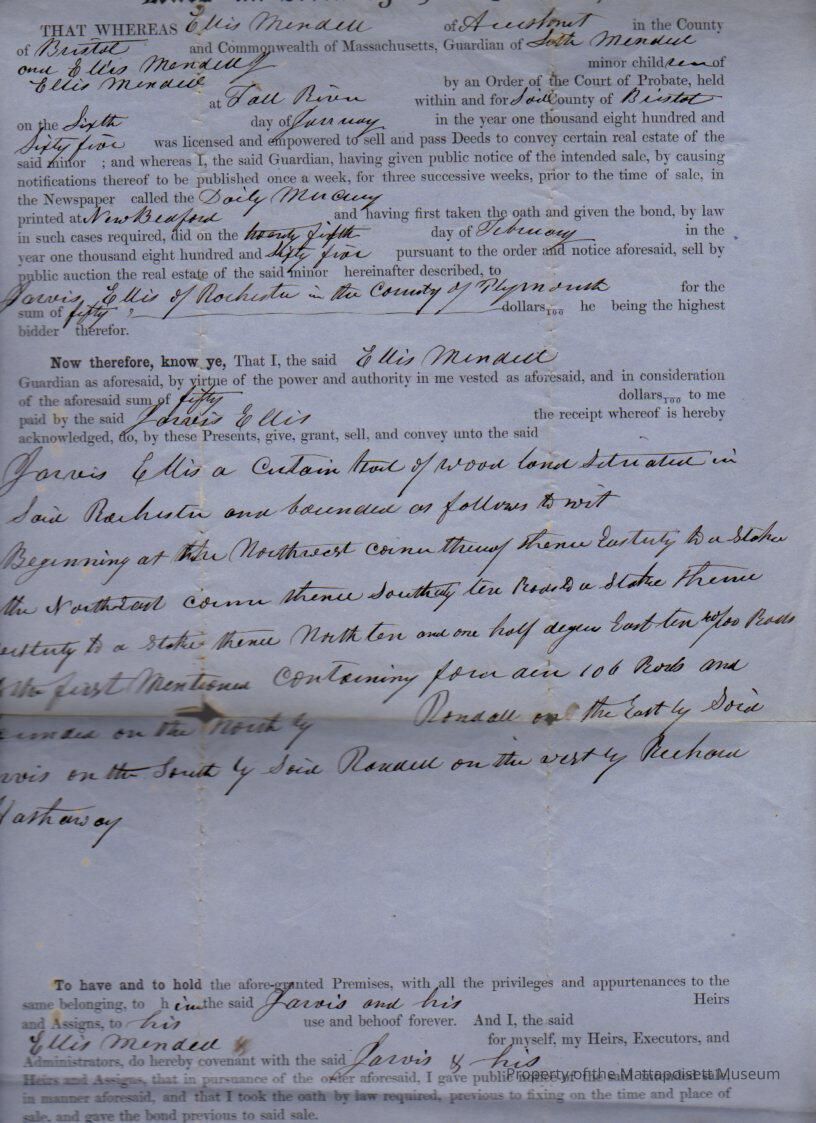 THAT WHEREAS Ellis Mendell of Acushnet in the County
of Bristol and Commonwealth of Massachusetts, Guardian of Seth Mendell
and Ellis Mendell minor children of
Ellis Mendell by an Order of the Court of Probate, held
at Fall River within and for Said County of Bristol
on the Sixth day of January in the year one thousand eight hundred and
Sixty five was licensed and empowered to sell and pass Deeds to convey certain real estate of the
said minor ; and whereas I, the said Guardian, having given public notice of the intended sale, by causing
notifications thereof to be published once a week, for three successive weeks, prior to the time of sale, in
the Newspaper called the Daily Mercury
printed at New Bedford and having first taken the oath and given the bond, by law
in such cases required, did on the twenty fifth day of February in the
year one thousand eight hundred and sixty five pursuant to the order and notice aforesaid, sell by
public auction the real estate of the said minor hereinafter described, to
Jarvis Ellis of Rochester in the County of Plymouth for the
sum of fifty dollars, he being the highest
bidder therefor.
Now therefore, know ye, That I, the said Ellis Mendell
Guardian as aforesaid, by virtue of the power and authority in me vested as aforesaid, and in consideration
of the aforesaid sum of fifty dollars to me
paid by the said Jarvis Ellis the receipt whereof is hereby
acknowledged, do, by these Presents, give, grant, sell, and convey unto the said
Jarvis Ellis a Certain tract of wood land Situated in
Said Rochester and bounded as follows to wit
Beginning at the Northwest corner thereof thence Easterly to a Stake
the North East corner thence Southerly ten Rods to a Stake thence
westerly to a Stake thence North ten and one half degrees East ten 40/100 Rods
the first Mentioned Containing four acres 106 Rods and
Bounded on the North by Randall on the East by Said
Jarvis on the South by Said Randell on the west by Richard
Hathaway
To have and to hold the afore-granted Premises, with all the privileges and appurtenances to the
same belonging, to him the said Jarvis and his Heirs
and Assigns, to his use and behoof forever. And I, the said
Ellis Mendell for myself, my Heirs, Executors, and
Administrators, do hereby covenant with the said Jarvis & his
Heirs and Assigns, that in pursuance of the order aforesaid, I gave public notice of the said intended sale
in manner aforesaid, and that I took the oath by law required, previous to fixing on the time and place of
sale, and gave the bond previous to said sale.
Property of the Mattapoisett Museum